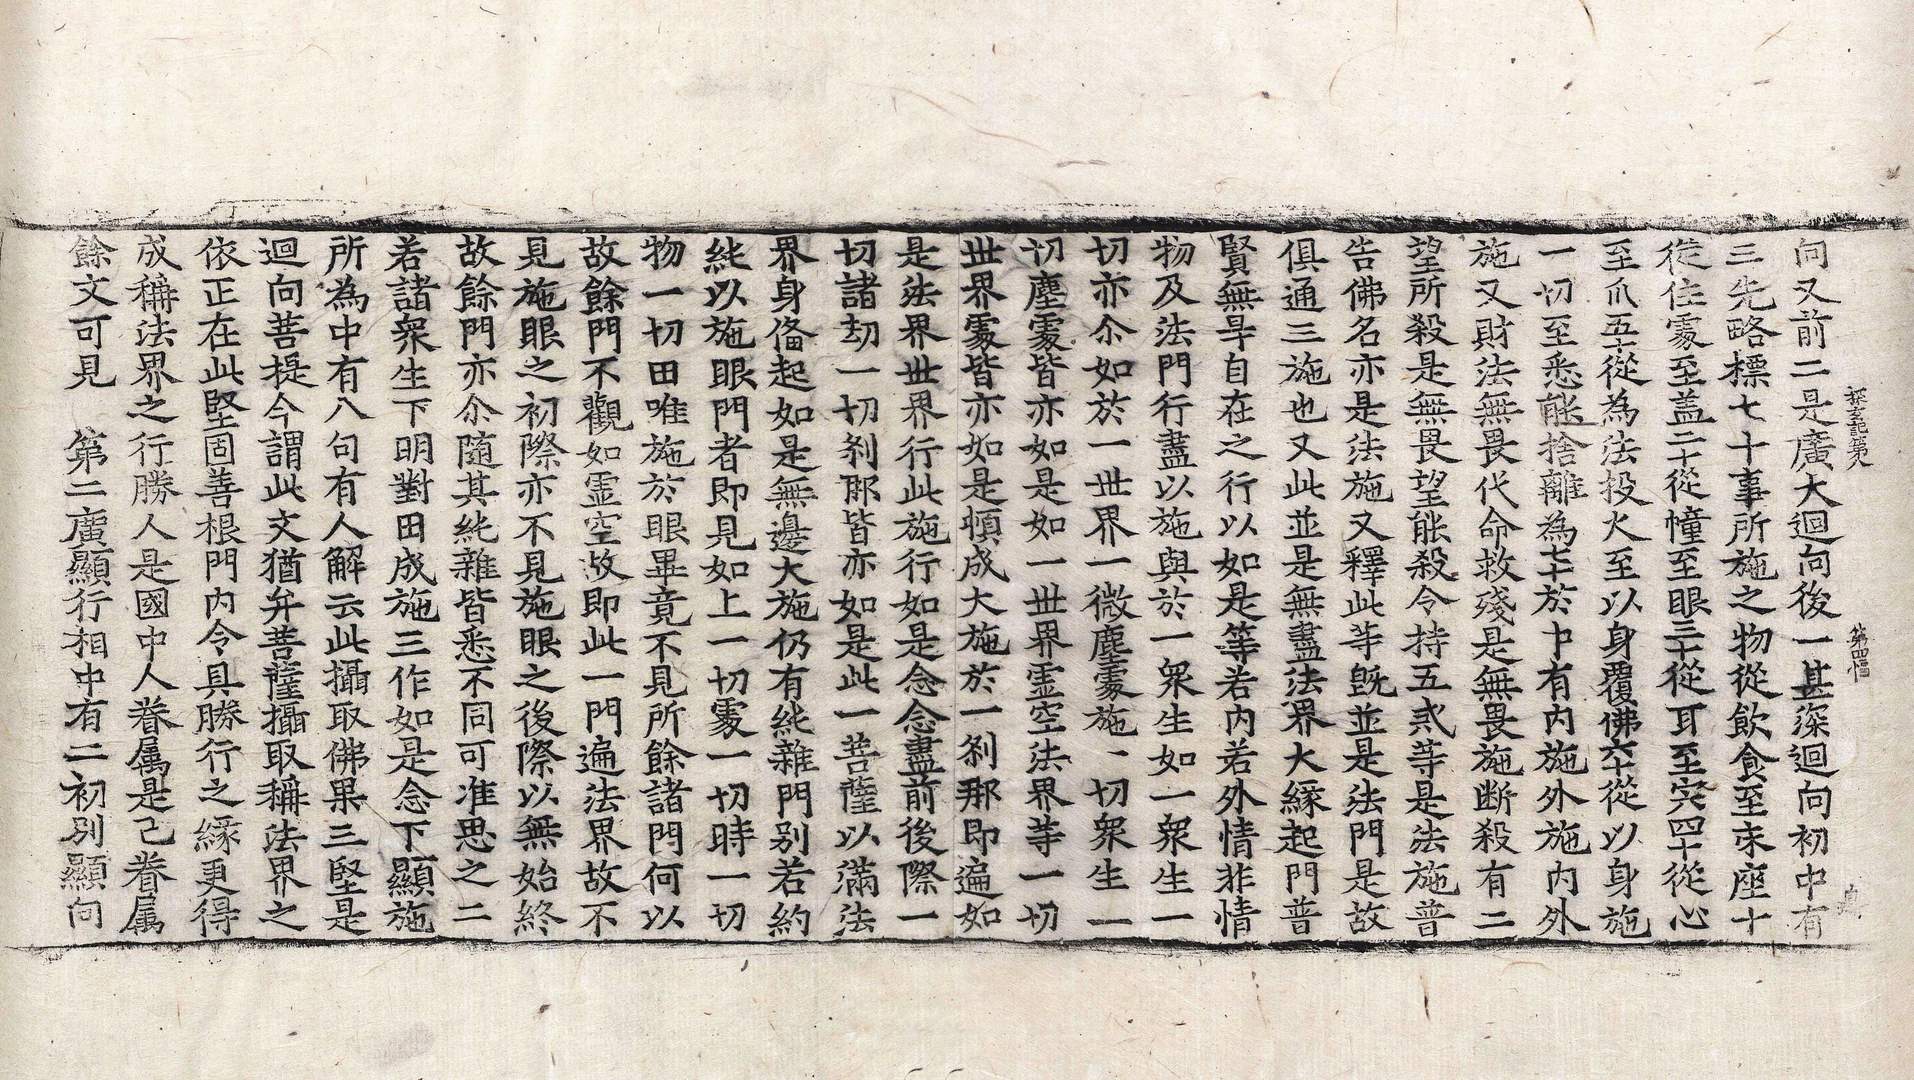 探玄記第八 第四幅 貞
向又前二是廣大迴向後一甚深迴向初中有
三先略標七十事所施之物從飲食至床座十
從住處至蓋二十從幢至眼三十從耳至穴四十從心
至爪五十從為法投火至以身覆佛六十從以身施
一切至悉能捨離為七十於中有內施外施內外
施又財法無畏代命救殘是無畏施断殺有二
望所殺是無畏望能殺令持五戒等是法施普
告佛名亦是法施又釋此等既並是法門是故
俱通三施也又此並是無盡法界大緣起門普
賢無㝵自在之行以如是等若內若外情非情
物及法門行盡以施與於一衆生如一衆生一
切亦尒如於一世界一微塵處施一切衆生一
切塵處皆亦如是如一世界虛空法界等一切
世界處皆亦如是頓成大施於一剎那即遍如
是法界世界行此施行如是念念盡前後際一
切諸劫一切剎那皆亦如是此一菩薩以滿法
界身俻起如是無邊大施仍有純雜門別若約
純以施眼門者即見如上一切處一切時一切
物一切田唯施於眼畢竟不見所餘諸門何以
故餘門不觀如虛空故即此一門遍法界故不
見施眼之初際亦不見施眼之後際以無始終
故餘門亦尒隨其純雜皆悉不同可准思之二
若諸衆生下明對田成施三作如是念下顯施
所為中有八句有人解云此攝取佛果三堅是
迴向菩提今謂此文猶并菩薩攝取稱法界之
依正在此堅固善根門內令具勝行之緣更得
成稱法界之行勝人是國中人眷属是己眷属
餘文可見 第二廣顯行相中有二初別顯向